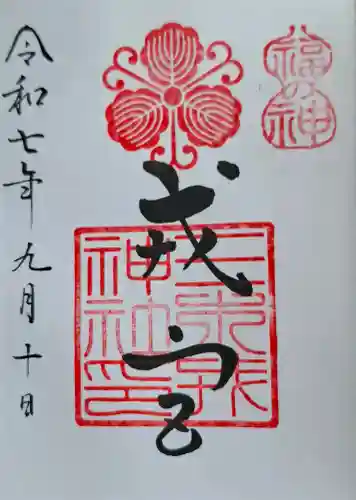 福の神
戎宮
神社印
令和七年九月十日